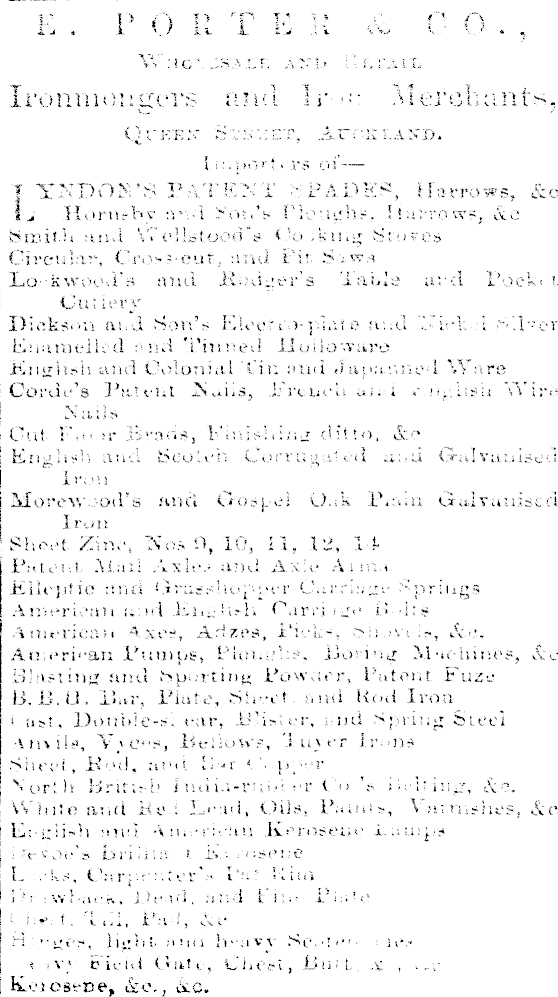 E. PORTER & CO.,
WHOLESALE AND RETAIL
Ironmongers and Iron Merchants,
QUEEN STREET, AUCKLAND.
Importers of—
LYNDON'S PATENT SPADES, Harrows, &c
Hornsby and Son's Ploughs, Harrows, &c
Smith and Wellstood's Cooking Stoves
Circular, Cross-cut, and Pit Saws
Lockwood's and Rodger's Table and Pocket
Cutlery
Dickson and Son's Electro-plate and Nickel Silver
Enamelled and Tinned Holloware
English and Colonial Tin and Japanned Ware
Corde's Patent Nails, French and English Wire
Nails
Cut Floor Brads, Finishing ditto, &c
English and Scotch Corrugated and Galvanised
Iron
Morewood's and Gospel Oak Plain Galvanised
Iron
Sheet Zinc, Nos 9, 10, 11, 12, 14
Patent Mail Axles and Axle Arms
Elleptic and Grasshopper Carriage Springs
American and English Carriage Bolts
American Axes, Adzes, Picks, Shovels, &c.
American Pumps, Ploughs, Boring Machines, &c
Blasting and Sporting Powder, Patent Fuze
B.B.H. Bar, Plate, Sheet, and Rod Iron
Cast, Double-shear, Blister, and Spring Steel
Anvils, Vyces, Bellows, Tuyer Irons
Sheet, Rod, and Bar Copper
North British India-rubber Co.'s Belting, &c.
White and Red Lead, Oils, Paints, Varnishes, &c
English and American Kerosene Lamps
Devoe's Brilliant Kerosene
Locks, Carpenter's Pat Rim
Drawback, Dead, and Fine Plate
Chest, Till, Pad, &c
Hinges, light and heavy Scotch
Heavy Field Gate, Chest, Butt, &c
Kerosene, &c., &c.